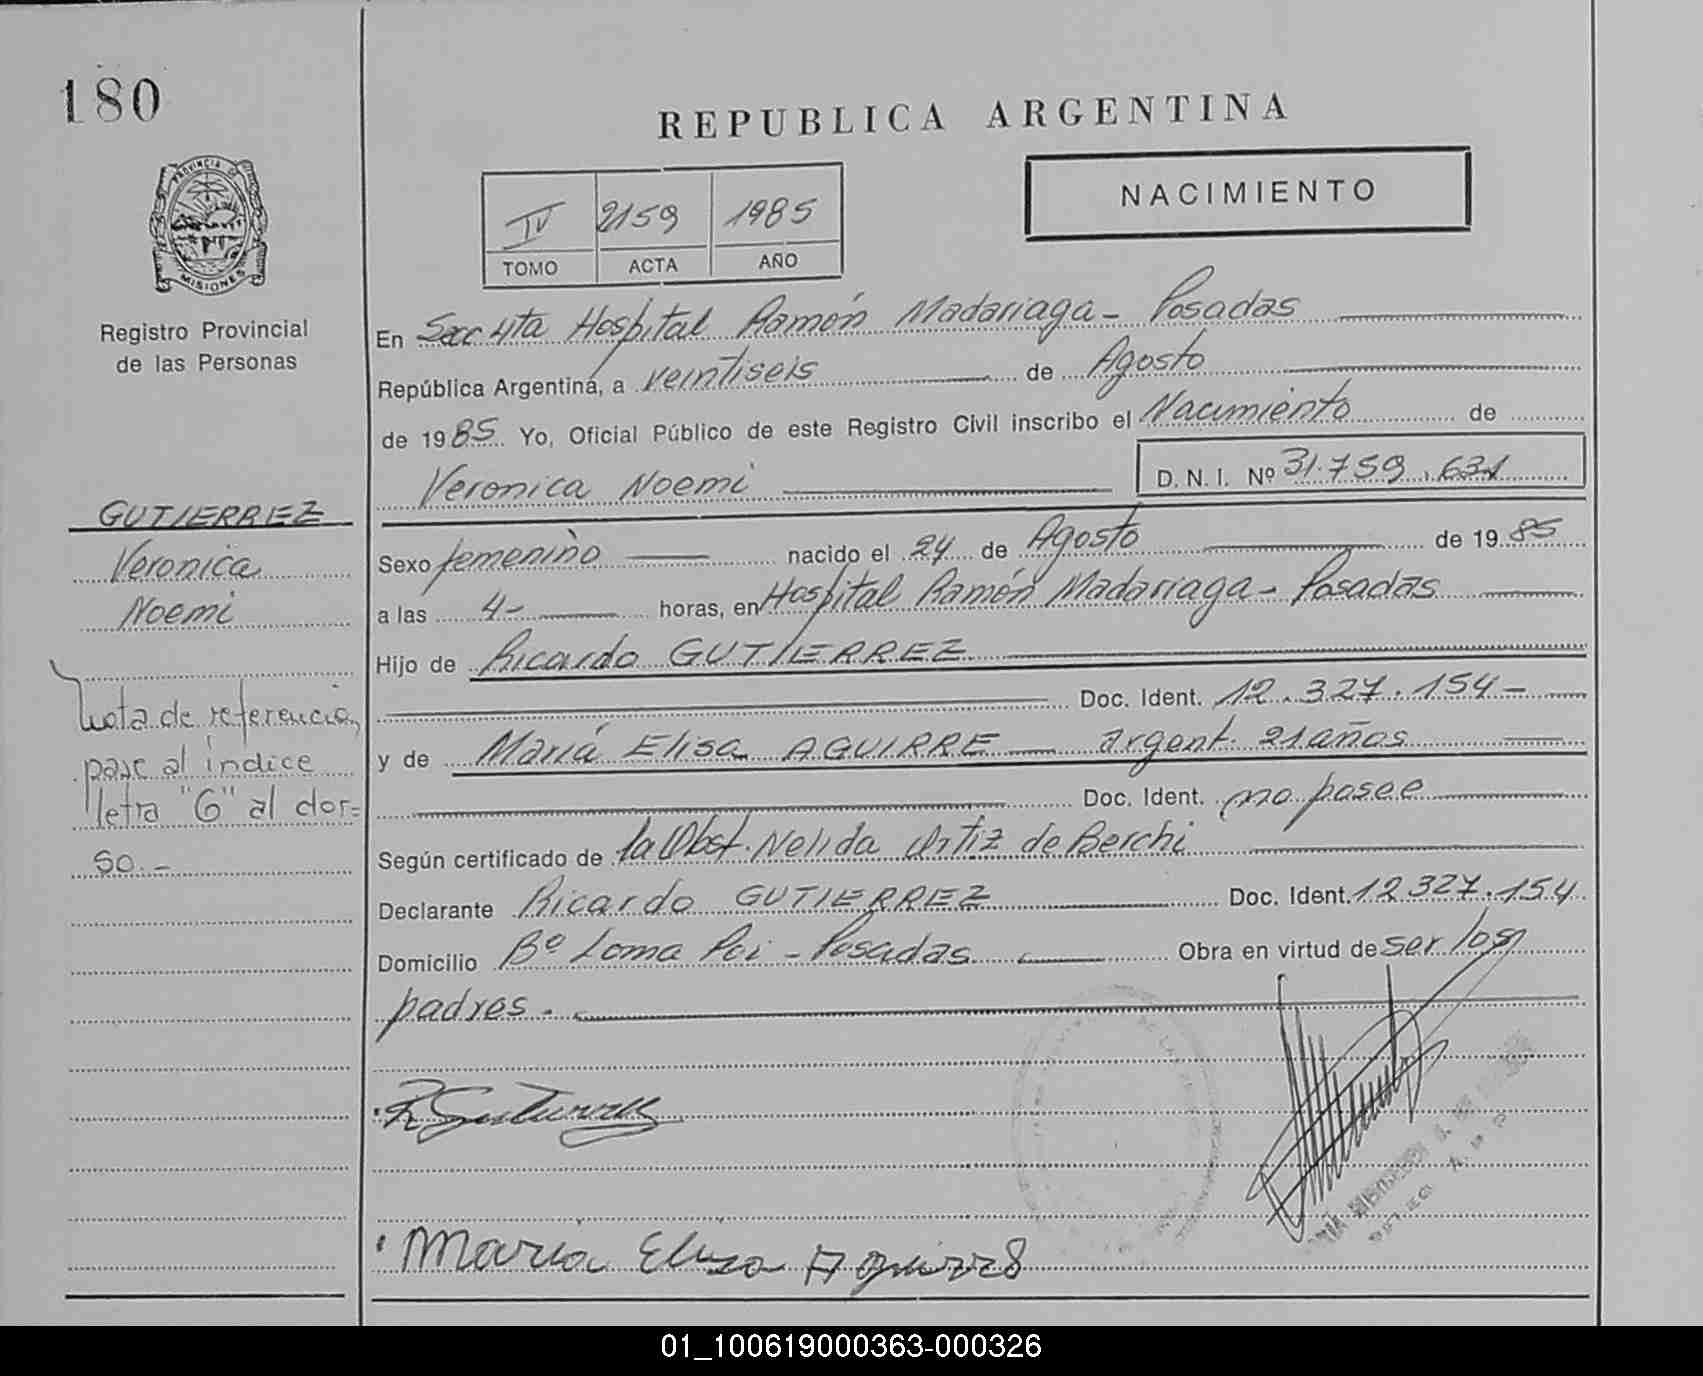 180
REPUBLICA ARGENTINA
PROVINCIA DE
MISIONES
Registro Provincial
de las Personas
IV 2159 1985
TOMO ACTA AÑO
NACIMIENTO
En Secc 4ta Hospital Ramón Madariaga - Posadas
República Argentina, a veintiseis de Agosto
de 1985 Yo, Oficial Público de este Registro Civil inscribo el Nacimiento de
Veronica Noemi D. N. I. Nº 31.759.631
GUTIERREZ
Veronica
Noemi
Nota de referencia,
pase al índice
letra "G" al dor=
so.-
Sexo femenino nacido el 24 de Agosto de 1985
a las 4- horas, en Hospital Ramón Madariaga - Posadas
Hijo de Ricardo GUTIERREZ
Doc. Ident. 12.327.154-
y de María Elisa AGUIRRE argent. 21 años
Doc. Ident. no posee
Según certificado de la Obst. Nelida Ortiz de Berchi
Declarante Ricardo GUTIERREZ Doc. Ident. 12.327.154
Domicilio Bº Loma Poi - Posadas Obra en virtud de ser los
padres.
R Gutierrez
Maria Elisa Aguirre
01_100619000363-000326